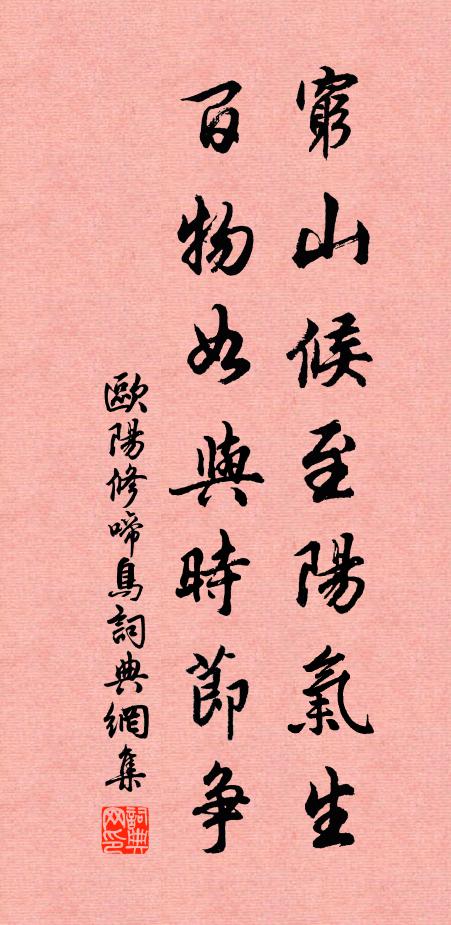 窮山候至陽氣生
百物如與時節爭
歐陽修啼鳥詞典網集
詞典网印